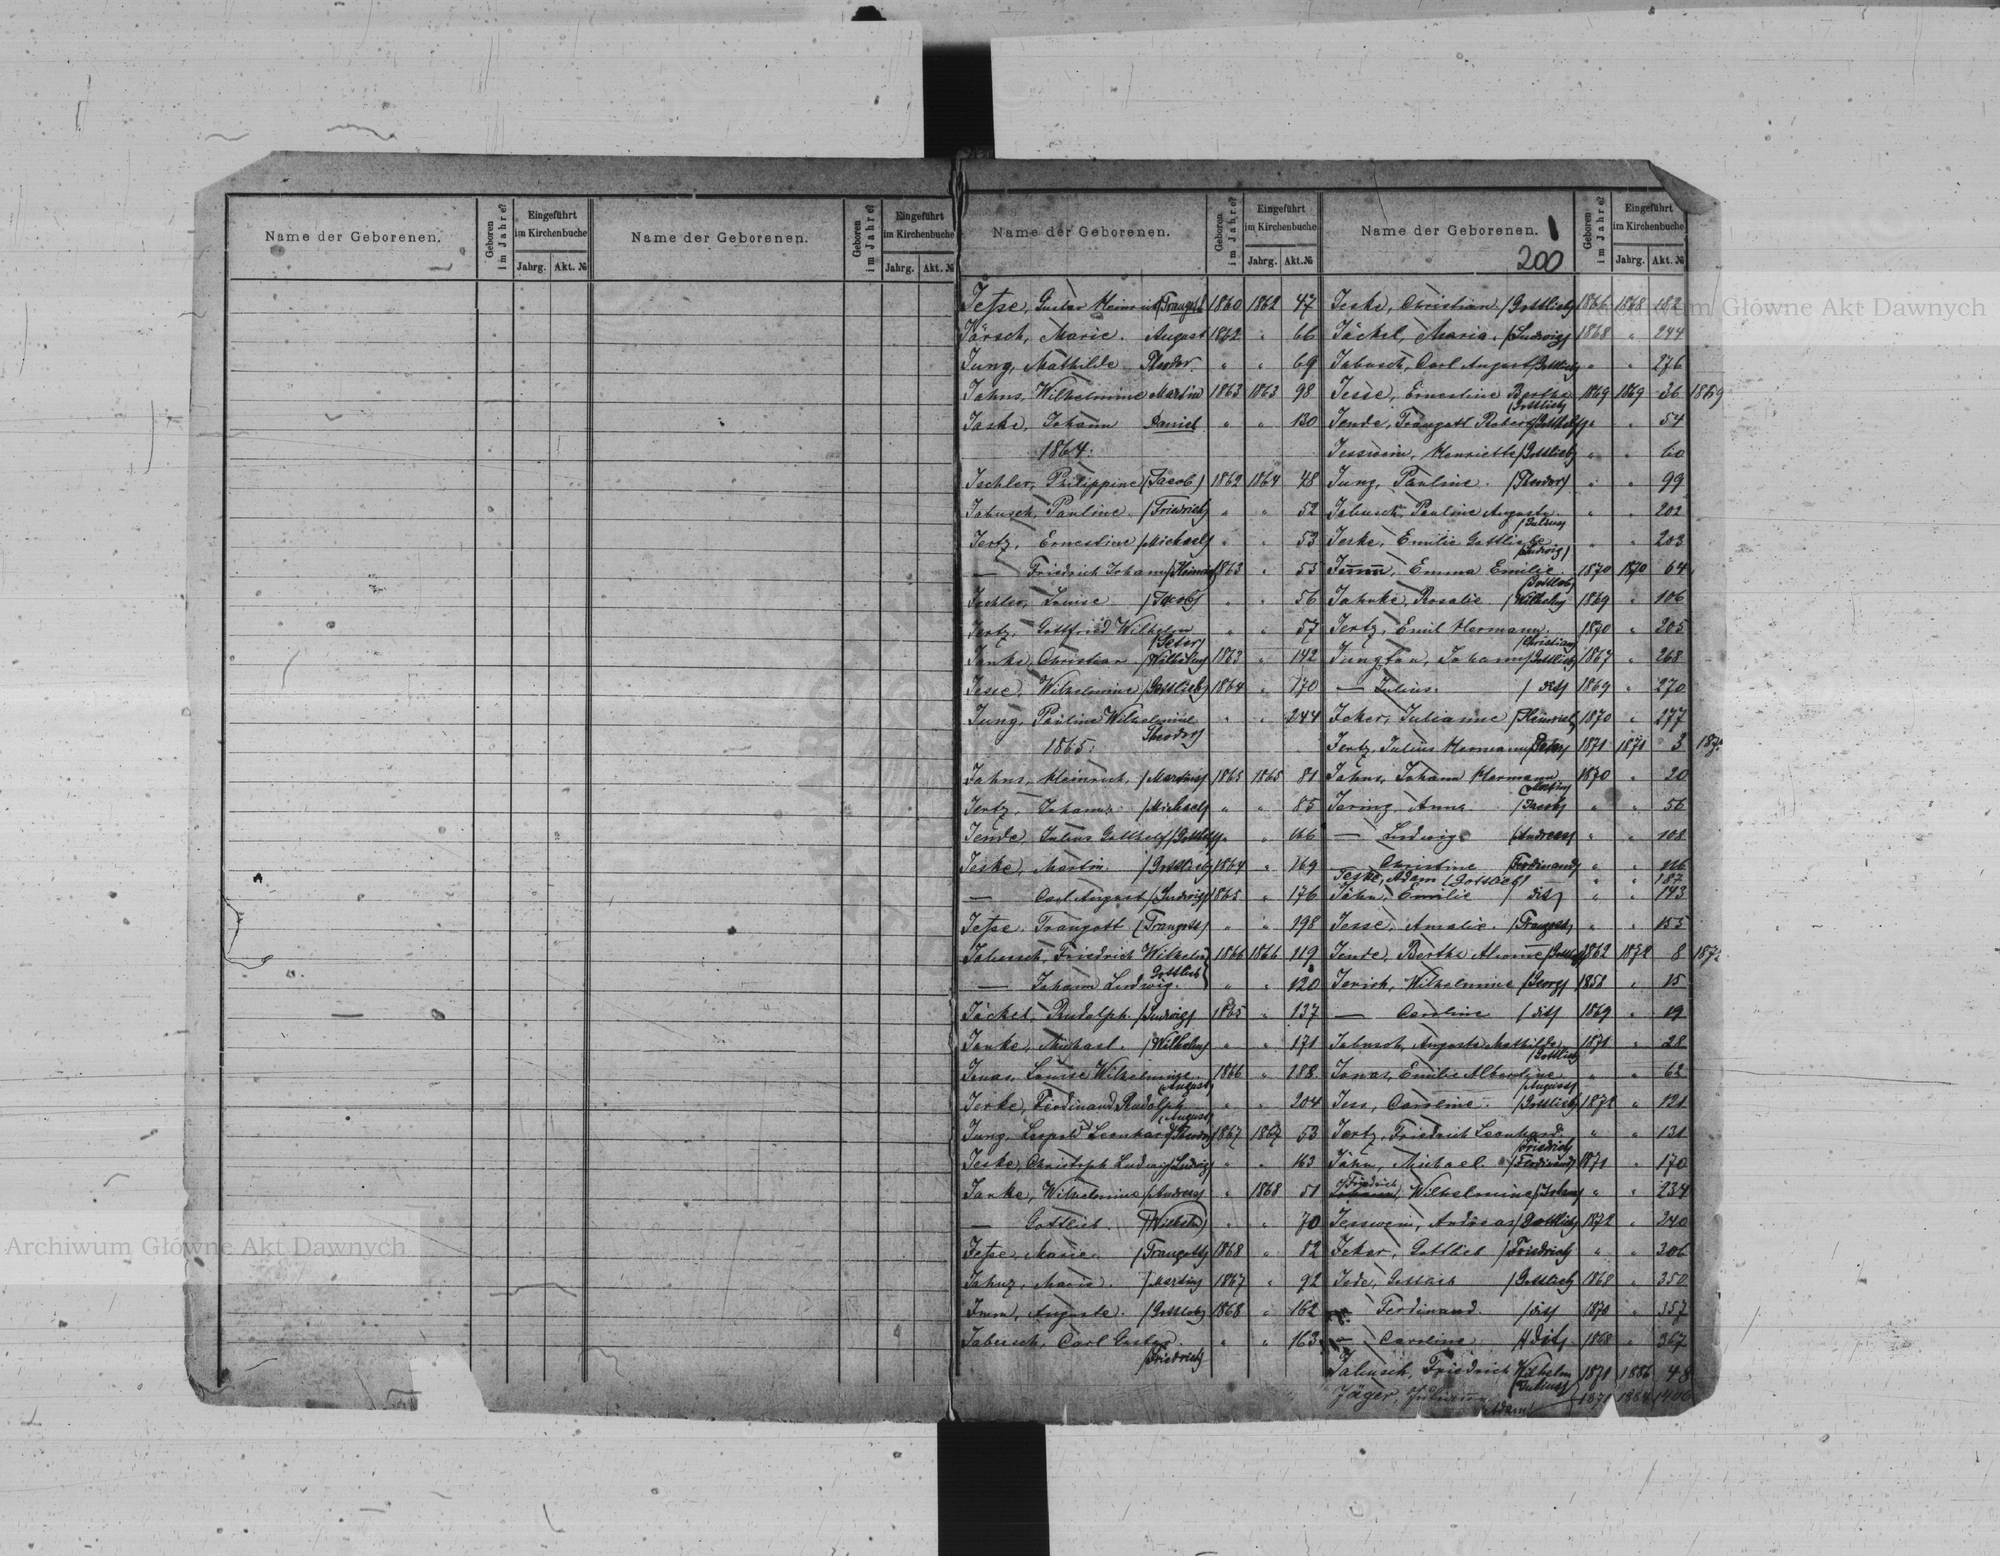 Name der Geborenen.
Geboren im Jahre?
Eingeführt im Kirchenbuche
Jahrg. Akt. №
Name der Geborenen.
Geboren im Jahre?
Eingeführt im Kirchenbuche
Jahrg. Akt. №
Name der Geborenen.
Geboren im Jahre?
Eingeführt im Kirchenbuche
Jahrg. Akt. №
Jesse, Gustav Heinrich (Traugott) 1860 1862 47
Jörsch, Marie. August 1862 " 66
Jung, Mathilde Theodor " " 69
Jahns, Wilhelmine Martin 1863 1863 98
Jaske, Johann Daniel " " 130
1864.
Ischler, Philippine (Jacob) 1862 1864 48
Jabusch, Pauline (Friedrich) " " 52
Jertz, Ernestine (Michael) " " 53
— Friedrich Johann (Heinrich) 1863 " 53
Ischler, Louise (Jacob) " " 56
Jertz, Gottfried Wilhelm " " 57
(Peter)
Janke, Christian (Wilhelm) 1863 " 142
Jesse, Wilhelmine (Gottlieb) 1864 " 170
Jung, Pauline Wilhelmine " " 244
Theodor)
1865.
Jahns, Heinrich. (Martin) 1865 1865 81
Jertz, Johann. (Michael) " " 85
Jende, Julius Gotthelf (Gotthelf) " " 166
Jeske, Martin (Gottlieb) 1864 " 169
— Carl August (Ludwig) 1865 " 176
Jesse, Traugott (Traugott) " " 198
Jabusch, Friedrich Wilhelm 1866 1866 119
Gottlieb
— Johann Ludwig. " " 120
Jäckel, Rudolph (Ludwig) 1865 " 137
Janke, Michael. (Wilhelm) " " 171
Jonas, Louise Wilhelmine. 1866 " 188
(August)
Jerke, Ferdinand Rudolph " " 204
(August)
Jung, Leopold Leonhard (Theodor) 1867 1867 53
Jeske, Christoph Ludwig (Ludwig) " " 163
Janke, Wilhelmine (Andreas) " 1868 51
— Gottlieb. (Wilhelm) " " 70
Jesse, Marie. (Traugott) 1868 " 82
Jahnz, Marie. (Martin) 1867 " 92
Imm, Auguste. (Gottlob) 1868 " 162
Jabusch, Carl Gustav. " " 163
(Friedrich)
Name der Geborenen.
1
200
Geboren im Jahre?
Eingeführt im Kirchenbuche
Jahrg. Akt. №
Jeske, Christian (Gottlieb) 1866 1868 182
Jäckel, Maria. (Ludwig) 1868 " 244
Jabusch, Carl August (Gottlieb) " " 276
Jesse, Ernestine Bertha 1869 1869 36 1869
(Gottlieb)
Jende, Traugott Robert (Gotthelf) " " 54
Jesswein, Henriette (Gottlieb) " " 60
Jung, Pauline. (Theodor) " " 99
Jabusch, Pauline Auguste. " " 201
(Julius)
Jeske, Emilie Gottliebe. " " 203
(Ludwig)
Imm, Emma Emilie. 1870 1870 64
(Gottlob)
Jahnke, Rosalie (Wilhelm) 1869 " 106
Jertz, Emil Hermann. 1870 " 205
(Christian)
Jungton, Johann (Gottlieb) 1867 " 268
— Julius. (dit) 1869 " 270
Jeker, Julianne (Heinrich) 1870 " 277
Jertz, Julius Hermann (Peter) 1871 1871 3
Jahns, Johann Hermann 1870 " 20
(Martin)
Jaring, Anna (Jacob) " " 56
— Ludwig. (Andreas) " " 108
— Christine (Ferdinand) " " 116
Jeske, Adam (Gottlieb) " " 187
Jähn, Emilie (dit) " " 143
Jesse, Amalie. (Traugott) " " 155
Jende, Bertha 1862 1872 8
Jerich, Wilhelmine (Georg) 1858 " 15
— Caroline (dit) 1869 " 19
Jabusch, Auguste Mathilde 1871 " 28
(Gottlieb)
Jonas, Emilie Albertine " " 62
(August)
Jess, Caroline. (Gottlieb) 1872 " 121
Jertz, Friedrich Leonhard. " " 131
(Friedrich)
Jähn, Michael. (Ferdinand) 1871 " 170
Friedrich
Wilhelmine (Johann) " " 234
Jesswein, Andreas (Gottlieb) 1872 " 240
Jeker, Gottlieb (Friedrich) " " 306
Jede, Gottlieb (Gottlieb) 1868 " 350
— Ferdinand. (dit) 1870 " 357
— Caroline (dit) 1868 " 367
Jabusch, Friedrich Wilhelm 1871 1886 48
(Julius)
Jäger, 1871 1888 1406
Adam)
Archiwum Główne Akt Dawnych
Archiwum Główne Akt Dawnych